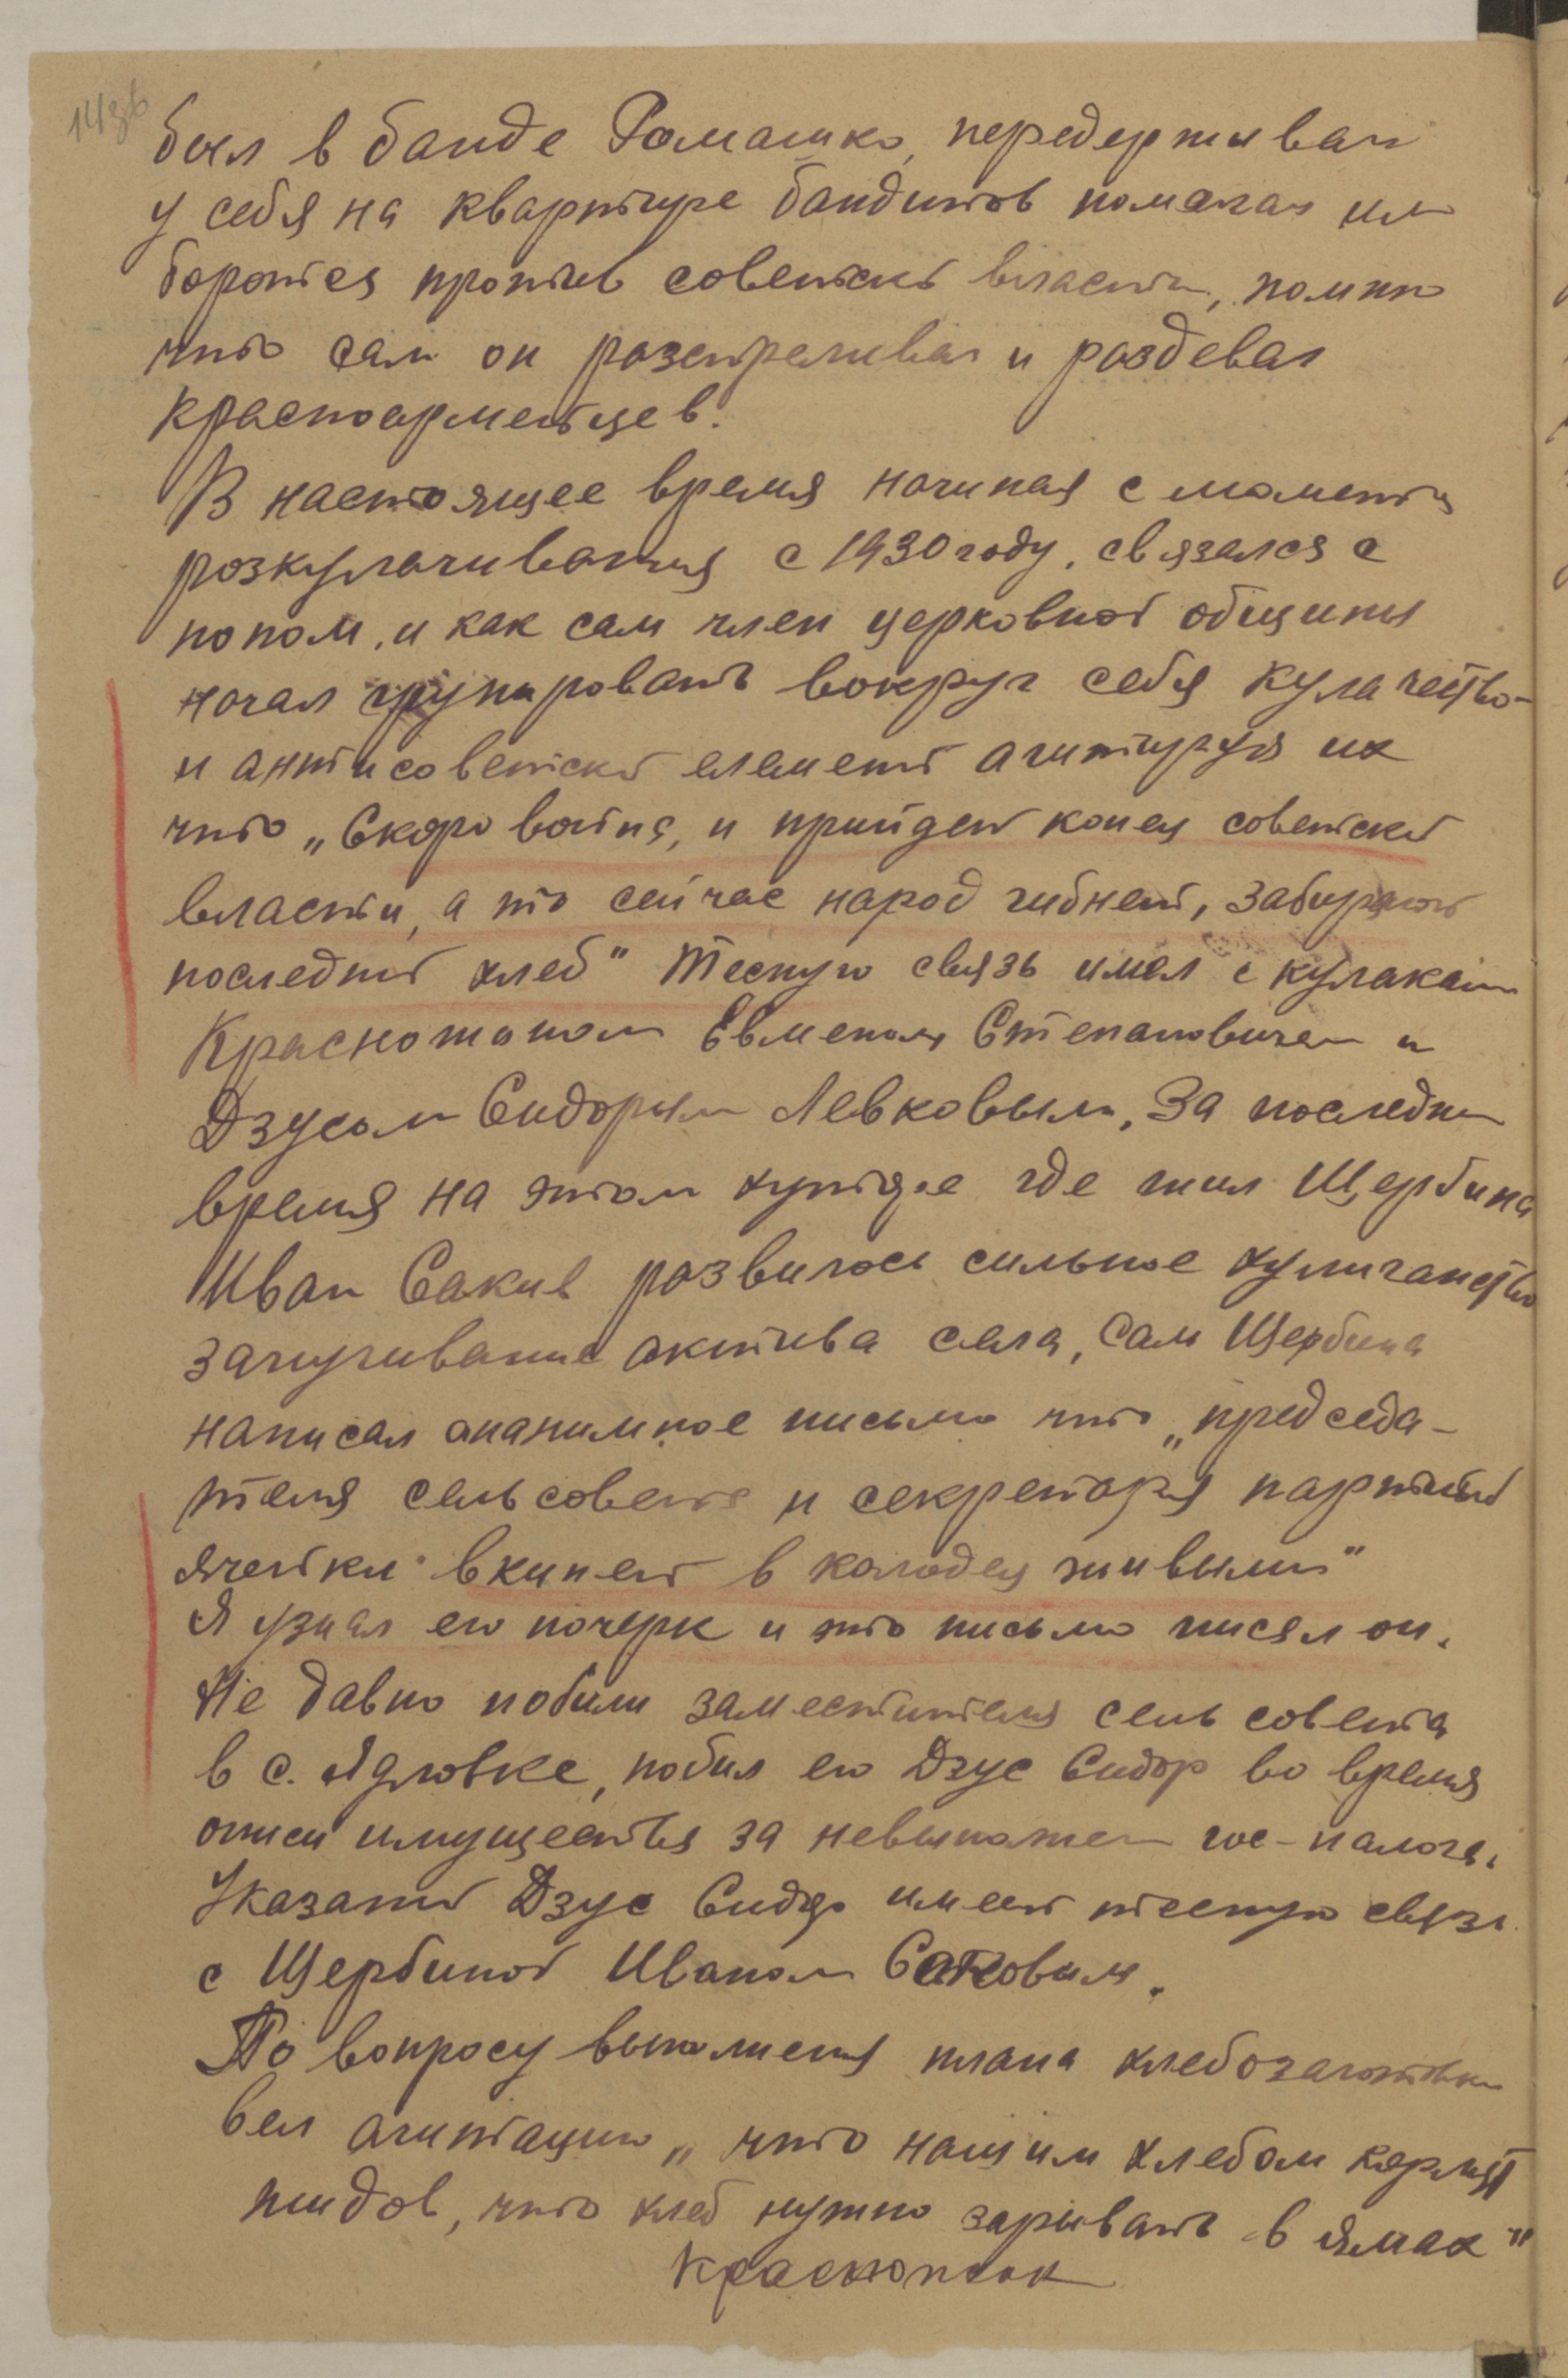 143б
был в банде Ромашко, передерживал
у себя на квартире бандитов помагал им
боротся против советской власти, помимо
что сам он розстреливал и роздевал
красноармейцев.
В настоящее время начиная с момента
розкулачивания с 1930 году, связался с
попом, и как сам член церковной общины
начал групировать вокруг себя кулачество-
и антисоветский елемент агитируя их
что „Скоро война, и прийдет конец советской
власти, а то сейчас народ гибнет, забирают
последний хлеб" Тесную связь имел с кулаками
Красножоном Евменом Степановичем и
Дзусом Сидорым Левковым, За последнее
время на этом хуторе где жил Щербина
Иван Сакив розвилось сильное хулиганство
запугивание актива села, Сам Щербина
написал ананимное письмо что „председа-
теля сельсовета и секретаря партийной
ячейки вкинет в колодец живыми"
Я узнал его почерк и это письмо писал он.
Не давно побили заместителя сельсовета
в с. Ядловке, побил его Дзус Сидор во время
описи имущества за невыпожен гос-налога.
Указаный Дзус Сидор имеет тесную связь
с Щербиной Иваном Саковым.
По вопросу выполнения плана хлебозаготовки
вел агитацию „что нашим хлебом кормят
жидов, что хлеб нужно зарывать в ямах"